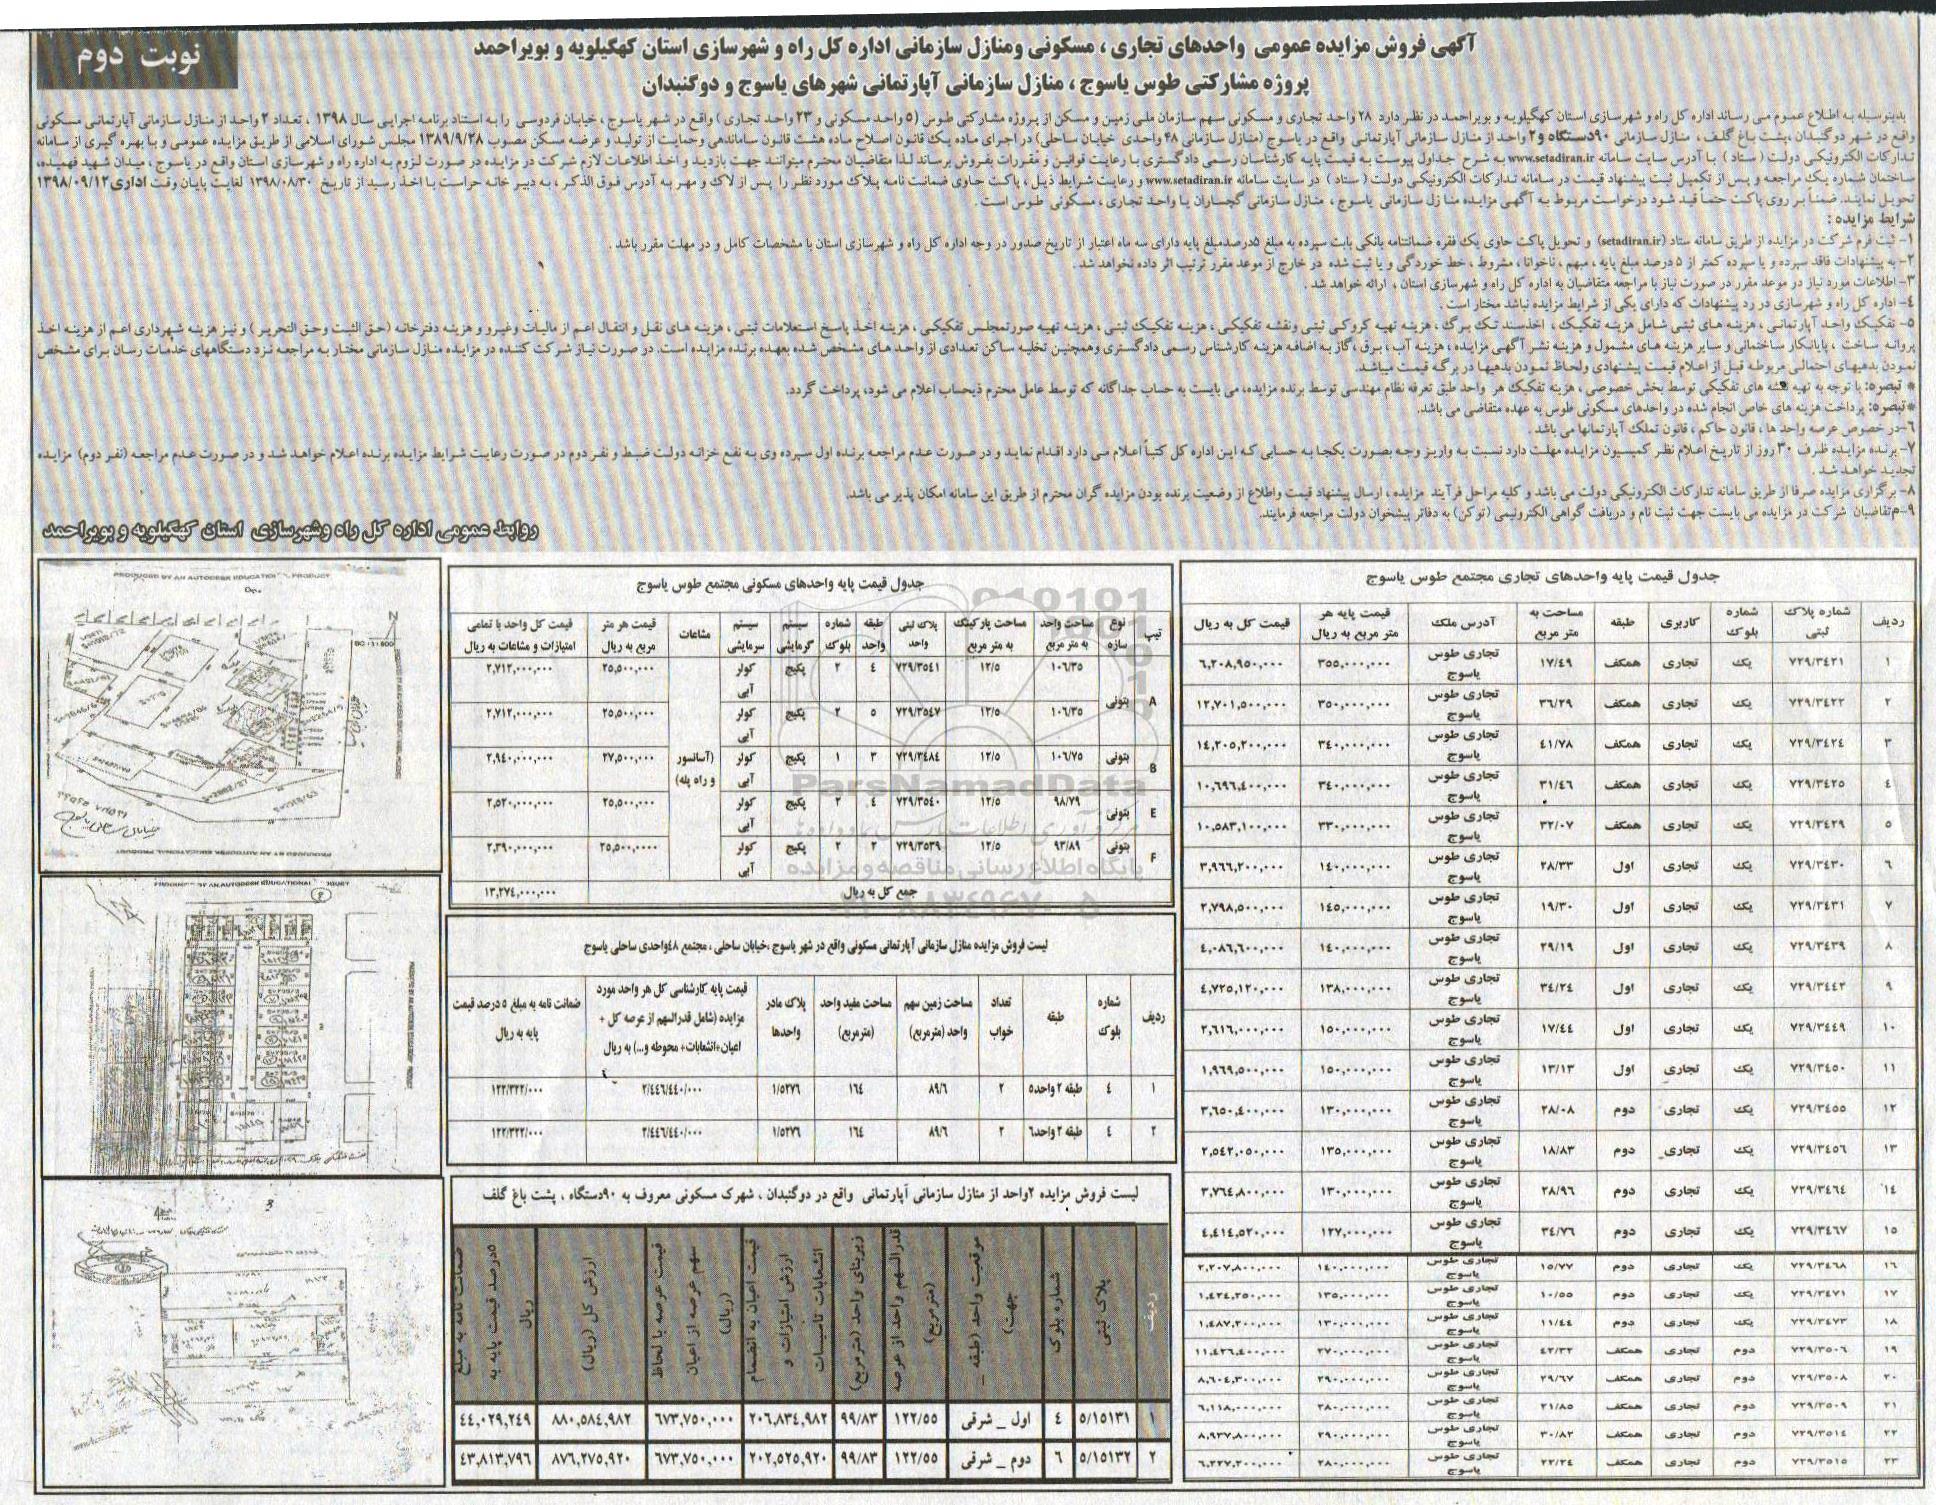 آگهی فروش مزایده عمومی واحدهای تجاری ، مسکونی ومنازل سازمانی اداره کل راه و شهرسازی استان کهگیلویه و بویراحمد
پروژه مشارکتی طوس یاسوج ، منازل سازمانی آپارتمانی شهرهای یاسوج و دوگنبدان
نوبت دوم
بدینوسیله به اطلاع عموم می رساند اداره کل راه و شهرسازی استان کهگیلویه و بویراحمد در نظر دارد ۲۸ واحد تجاری و مسکونی سهم سازمان ملی زمین و مسکن از پروژه مشارکتی طوس (۵ واحد مسکونی و ۲۳ واحد تجاری ) واقع در شهر یاسوج ، خیابان فردوسی را به استناد برنامه اجرایی سال ۱۳۹۸ ، تعداد ۲ واحد از منازل سازمانی آپارتمانی مسکونی
واقع در شهر دوگنبدان ،پشت باغ گلف ، منازل سازمانی ۹۰دستگاه و۲ واحد از منازل سازمانی آپارتمانی واقع در یاسوج (منازل سازمانی ۴۸واحدی خیابان ساحلی) در اجرای ماده یک قانون اصلاح ماده هشت قانون ساماندهی وحمایت از تولید و عرضه مسکن مصوب ۱۳۸۹/۹/۲۸ مجلس شورای اسلامی از طریق مزایده عمومی و با بهره گیری از سامانه
تدارکات الکترونیکی دولت ( ستاد ) با آدرس سایت سامانه www.setadiran.ir به شرح جداول پیوست به قیمت پایه کارشناسان رسمی دادگستری با رعایت قوانین و مقررات بفروش برساند لذا متقاضیان محترم میتوانند جهت بازدید و اخذ اطلاعات لازم شرکت در مزایده در صورت لزوم به اداره راه و شهرسازی استان واقع در یاسوج ، میدان شهید فهمیده،
ساختمان شماره یک مراجعه و پس از تکمیل ثبت پیشنهاد قیمت در سامانه تدارکات الکترونیکی دولت ( ستاد ) در سایت سامانه www.setadiran.ir و رعایت شرایط ذیل ، پاکت حاوی ضمانت نامه پلاک مورد نظر را پس از لاک و مهر به آدرس فوق الذکر ، به دبیر خانه حراست با اخذ رسید از تاریخ ۱۳۹۸/۰۸/۳۰ لغایت پایان وقت اداری۱۳۹۸/۰۹/۱۲
تحویل نمایند. ضمناً بر روی پاکت حتماً قید شود درخواست مربوط به آگهی مزایده منازل سازمانی یاسوج ، منازل سازمانی گچساران یا واحد تجاری ، مسکونی طوس است .
شرایط مزایده :
۱- ثبت فرم شرکت در مزایده از طریق سامانه ستاد (setadiran.ir) و تحویل پاکت حاوی یک فقره ضمانتنامه بانکی بابت سپرده به مبلغ ۵درصدمبلغ پایه دارای سه ماه اعتبار از تاریخ صدور در وجه اداره کل راه و شهرسازی استان با مشخصات کامل و در مهلت مقرر باشد .
۲- به پیشنهادات فاقد سپرده و یا سپرده کمتر از ۵ درصد مبلغ پایه ، مبهم ، ناخوانا ، مشروط ، خط خوردگی و یا ثبت شده در خارج از موعد مقرر ترتیب اثر داده نخواهد شد .
۳- اطلاعات مورد نیاز در موعد مقرر در صورت نیاز با مراجعه متقاضیان به اداره کل راه و شهرسازی استان ، ارائه خواهد شد .
۴- اداره کل راه و شهرسازی در رد پیشنهادات که دارای یکی از شرایط مزایده نباشد مختار است .
۵- تفکیک واحد آپارتمانی ، هزینه های ثبتی شامل هزینه تفکیک ، اخذسند تک برگ ، هزینه تهیه کروکی ثبتی ونقشه تفکیکی ، هزینه تفکیک ثبتی ، هزینه تهیه صورتمجلس تفکیکی ، هزینه اخذ پاسخ استعلامات ثبتی ، هزینه های نقل و انتقال اعم از مالیات وغیرو و هزینه دفترخانه (حق الثبت وحق التحریر ) و نیز هزینه شهرداری اعم از هزینه اخذ
پروانه ساخت ، پایانکار ساختمانی و سایر هزینه های مشمول و هزینه نشر آگهی مزایده ، هزینه آب ، برق ، گاز به اضافه هزینه کارشناس رسمی دادگستری وهمچنین تخلیه ساکن تعدادی از واحد های مشخص شده بعهده برنده مزایده است. در صورت نیاز شرکت کننده در مزایده منازل سازمانی مختار به مراجعه نزد دستگاههای خدمات رسان برای مشخص
نمودن بدهیهای احتمالی مربوطه قبل از اعلام قیمت پیشنهادی ولحاظ نمودن بدهیها در برگه قیمت میباشد.
* تبصره: با توجه به تهیه نقشه های تفکیکی توسط بخش خصوصی ، هزینه تفکیک هر واحد طبق تعرفه نظام مهندسی توسط برنده مزایده، می بایست به حساب جداگانه که توسط عامل محترم ذیحساب اعلام می شود، پرداخت گردد.
*تبصره: پرداخت هزینه های خاص انجام شده در واحدهای مسکونی طوس به عهده متقاضی می باشد.
۶-در خصوص عرصه واحد ها ، قانون حاکم ، قانون تملک آپارتمانها می باشد .
۷- برنده مزایده ظرف ۳۰ روز از تاریخ اعلام نظر کمیسیون مزایده مهلت دارد نسبت به واریز وجه بصورت یکجا به حسابی که این اداره کل کتباً اعلام می دارد اقدام نماید و در صورت عدم مراجعه برنده اول سپرده وی به نفع خزانه دولت ضبط و نفر دوم در صورت رعایت شرایط مزایده برنده اعلام خواهد شد و در صورت عدم مراجعه (نفر دوم) مزایده
تجدید خواهد شد .
۸- برگزاری مزایده صرفا از طریق سامانه تدارکات الکترونیکی دولت می باشد و کلیه مراحل فرآیند مزایده ، ارسال پیشنهاد قیمت واطلاع از وضعیت برنده بودن مزایده گران محترم از طریق این سامانه امکان پذیر می باشد.
۹-متقاضیان شرکت در مزایده می بایست جهت ثبت نام و دریافت گواهی الکترونیمی (توکن) به دفاتر پیشخوان دولت مراجعه فرمایند.
روابط عمومی اداره کل راه وشهرسازی استان کهگیلویه و بویراحمد
جدول قیمت پایه واحدهای تجاری مجتمع طوس یاسوج
ردیف شماره پلاک ثبتی شماره بلوک کاربری طبقه مساحت به متر مربع آدرس ملک قیمت پایه هر متر مربع به ریال قیمت کل به ریال
۱ ۷۲۹/۳۴۲۱ یک تجاری همکف ۱۷/۴۹ تجاری طوس یاسوج ۳۵۵,۰۰۰,۰۰۰ ۶,۲۰۸,۹۵۰,۰۰۰
۲ ۷۲۹/۳۴۲۲ یک تجاری همکف ۳۶/۲۹ تجاری طوس یاسوج ۳۵۰,۰۰۰,۰۰۰ ۱۲,۷۰۱,۵۰۰,۰۰۰
۳ ۷۲۹/۳۴۲۴ یک تجاری همکف ۴۱/۷۸ تجاری طوس یاسوج ۳۴۰,۰۰۰,۰۰۰ ۱۴,۲۰۵,۲۰۰,۰۰۰
۴ ۷۲۹/۳۴۲۵ یک تجاری همکف ۳۱/۴۶ تجاری طوس یاسوج ۳۴۰,۰۰۰,۰۰۰ ۱۰,۶۹۶,۴۰۰,۰۰۰
۵ ۷۲۹/۳۴۲۹ یک تجاری همکف ۳۲/۰۷ تجاری طوس یاسوج ۳۳۰,۰۰۰,۰۰۰ ۱۰,۵۸۳,۱۰۰,۰۰۰
۶ ۷۲۹/۳۴۳۰ یک تجاری اول ۲۸/۳۳ تجاری طوس یاسوج ۱۴۰,۰۰۰,۰۰۰ ۳,۹۶۶,۲۰۰,۰۰۰
۷ ۷۲۹/۳۴۳۱ یک تجاری اول ۱۹/۳۰ تجاری طوس یاسوج ۱۴۵,۰۰۰,۰۰۰ ۲,۷۹۸,۵۰۰,۰۰۰
۸ ۷۲۹/۳۴۳۹ یک تجاری اول ۲۹/۱۹ تجاری طوس یاسوج ۱۴۰,۰۰۰,۰۰۰ ۴,۰۸۶,۶۰۰,۰۰۰
۹ ۷۲۹/۳۴۴۳ یک تجاری اول ۳۴/۲۴ تجاری طوس یاسوج ۱۳۸,۰۰۰,۰۰۰ ۴,۷۲۵,۱۲۰,۰۰۰
۱۰ ۷۲۹/۳۴۴۹ یک تجاری اول ۱۷/۴۴ تجاری طوس یاسوج ۱۵۰,۰۰۰,۰۰۰ ۲,۶۱۶,۰۰۰,۰۰۰
۱۱ ۷۲۹/۳۴۵۰ یک تجاری اول ۱۳/۱۳ تجاری طوس یاسوج ۱۵۰,۰۰۰,۰۰۰ ۱,۹۶۹,۵۰۰,۰۰۰
۱۲ ۷۲۹/۳۴۵۵ یک تجاری دوم ۲۸/۰۸ تجاری طوس یاسوج ۱۳۰,۰۰۰,۰۰۰ ۳,۶۵۰,۴۰۰,۰۰۰
۱۳ ۷۲۹/۳۴۵۶ یک تجاری دوم ۱۸/۸۳ تجاری طوس یاسوج ۱۳۵,۰۰۰,۰۰۰ ۲,۵۴۲,۰۵۰,۰۰۰
۱۴ ۷۲۹/۳۴۶۴ یک تجاری دوم ۲۸/۹۶ تجاری طوس یاسوج ۱۳۰,۰۰۰,۰۰۰ ۳,۷۶۴,۸۰۰,۰۰۰
۱۵ ۷۲۹/۳۴۶۷ یک تجاری دوم ۳۴/۷۶ تجاری طوس یاسوج ۱۲۷,۰۰۰,۰۰۰ ۴,۴۱۴,۵۲۰,۰۰۰
۱۶ ۷۲۹/۳۴۶۸ یک تجاری دوم ۱۵/۷۷ تجاری طوس یاسوج ۱۴۰,۰۰۰,۰۰۰ ۲,۲۰۷,۸۰۰,۰۰۰
۱۷ ۷۲۹/۳۴۷۱ یک تجاری دوم ۱۰/۵۵ تجاری طوس یاسوج ۱۳۵,۰۰۰,۰۰۰ ۱,۴۲۴,۲۵۰,۰۰۰
۱۸ ۷۲۹/۳۴۷۳ یک تجاری دوم ۱۱/۴۴ تجاری طوس یاسوج ۱۳۰,۰۰۰,۰۰۰ ۱,۴۸۷,۲۰۰,۰۰۰
۱۹ ۷۲۹/۳۵۰۶ دوم تجاری همکف ۴۲/۳۲ تجاری طوس یاسوج ۲۷۰,۰۰۰,۰۰۰ ۱۱,۴۲۶,۴۰۰,۰۰۰
۲۰ ۷۲۹/۳۵۰۸ دوم تجاری همکف ۲۹/۶۷ تجاری طوس یاسوج ۲۹۰,۰۰۰,۰۰۰ ۸,۶۰۴,۳۰۰,۰۰۰
۲۱ ۷۲۹/۳۵۰۹ دوم تجاری همکف ۲۱/۸۵ تجاری طوس یاسوج ۲۸۰,۰۰۰,۰۰۰ ۶,۱۱۸,۰۰۰,۰۰۰
۲۲ ۷۲۹/۳۵۱۴ دوم تجاری همکف ۳۰/۸۲ تجاری طوس یاسوج ۲۹۰,۰۰۰,۰۰۰ ۸,۹۳۷,۸۰۰,۰۰۰
۲۳ ۷۲۹/۳۵۱۵ دوم تجاری همکف ۲۲/۲۴ تجاری طوس یاسوج ۲۸۰,۰۰۰,۰۰۰ ۶,۲۲۷,۲۰۰,۰۰۰
جدول قیمت پایه واحدهای مسکونی مجتمع طوس یاسوج
تیپ نوع سازه مساحت واحد به متر مربع مساحت پارکینگ به متر مربع پلاک ثبتی واحد طبقه واحد شماره بلوک سیستم گرمایشی سیستم سرمایشی مشاعات قیمت هر متر مربع به ریال قیمت کل واحد با تمامی امتیازات و مشاعات به ریال
A بتونی ۱۰۶/۳۵ ۱۲/۵ ۷۲۹/۳۵۴۱ ۴ ۲ پکیج کولر آبی ۲۵,۵۰۰,۰۰۰ ۲,۷۱۲,۰۰۰,۰۰۰
۱۰۶/۳۵ ۱۲/۵ ۷۲۹/۳۵۴۷ ۵ ۲ پکیج کولر آبی ۲۵,۵۰۰,۰۰۰ ۲,۷۱۲,۰۰۰,۰۰۰
B بتونی ۱۰۶/۷۵ ۱۲/۵ ۷۲۹/۳۴۸۴ ۳ ۱ پکیج کولر آبی (آسانسور و راه پله) ۲۷,۵۰۰,۰۰۰ ۲,۹۴۰,۰۰۰,۰۰۰
E بتونی ۹۸/۷۹ ۱۲/۵ ۷۲۹/۳۵۴۰ ۴ ۲ پکیج کولر آبی ۲۵,۵۰۰,۰۰۰ ۲,۵۲۰,۰۰۰,۰۰۰
F بتونی ۹۳/۸۹ ۱۲/۵ ۷۲۹/۳۵۳۹ ۲ ۲ پکیج کولر آبی ۲۵,۵۰۰,۰۰۰۰ ۲,۳۹۰,۰۰۰,۰۰۰
جمع کل به ریال ۱۳,۲۷۴,۰۰۰,۰۰۰
لیست فروش مزایده منازل سازمانی آپارتمانی مسکونی واقع در شهر یاسوج ،خیابان ساحلی ، مجتمع ۴۸واحدی ساحلی یاسوج
ردیف شماره بلوک طبقه تعداد خواب مساحت زمین سهم واحد (مترمربع) مساحت مفید واحد (مترمربع) پلاک مادر واحدها قیمت پایه کارشناسی کل هر واحد مورد مزایده (شامل قدرالسهم از عرصه کل + اعیان+انشعابات+ محوطه و...) به ریال ضمانت نامه به مبلغ ۵ درصد قیمت پایه به ریال
۱ ۴ طبقه ۲ واحد۵ ۲ ۸۹/۶ ۱۶۴ ۱/۵۲۷۶ ۲/۴۴۶/۴۴۰/۰۰۰ ۱۲۲/۳۲۲/۰۰۰
۲ ۴ طبقه ۲ واحد۶ ۲ ۸۹/۶ ۱۶۴ ۱/۵۲۷۶ ۲/۴۴۶/۴۴۰/۰۰۰ ۱۲۲/۳۲۲/۰۰۰
لیست فروش مزایده ۲واحد از منازل سازمانی آپارتمانی واقع در دوگنبدان ، شهرک مسکونی معروف به ۹۰دستگاه ، پشت باغ گلف
ردیف پلاک ثبتی شماره بلوک موقعیت واحد (طبقه _ جهت) قدرالسهم واحد از عرصه (مترمربع) زیربنای واحد (مترمربع) قیمت اعیان به انضمام ارزش امتیازات و انشعابات تاسیسات قیمت عرصه با لحاظ سهم عرصه از اعیان (ریال) ارزش کل (ریال) ضمانت نامه به مبلغ ۵درصد قیمت پایه به ریال
۱ ۵/۱۵۱۳۱ ۴ اول _ شرقی ۱۲۲/۵۵ ۹۹/۸۳ ۲۰۶,۸۳۴,۹۸۲ ۶۷۳,۷۵۰,۰۰۰ ۸۸۰,۵۸۴,۹۸۲ ۴۴,۰۲۹,۲۴۹
۲ ۵/۱۵۱۳۲ ۶ دوم _ شرقی ۱۲۲/۵۵ ۹۹/۸۳ ۲۰۲,۵۲۵,۹۲۰ ۶۷۳,۷۵۰,۰۰۰ ۸۷۶,۲۷۵,۹۲۰ ۴۳,۸۱۳,۷۹۶
PRODUCED BY AN AUTODESK EDUCATIONAL PRODUCT
ParsNamadData
پایگاه اطلاع رسانی مناقصه و مزایده